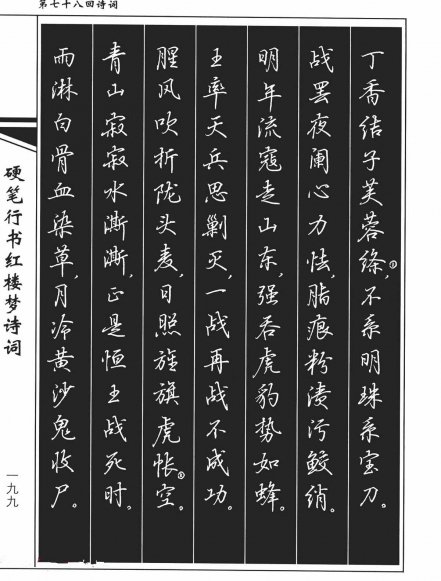 第七十八回诗词
丁香结子芙蓉绦，①不系明珠系宝刀。
战罢夜阑心力怯，脂痕粉渍污鲛绡。
明年流寇走山东，强吞虎豹势如蜂。
王率天兵思剿灭，一战再战不成功。
腥风吹折陇头麦，日照旌旗虎帐①空。
青山寂寂水澌澌，正是恒王战死时。
雨淋白骨血染草，月冷黄沙鬼收尸。
硬笔行书红楼梦诗词
一九九